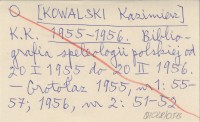 [KOWALSKI Kazimierz]
K.K. 1955-1956. Biblio-
grafia speleologii polskiej od
20 I 1955 do 20 II 1956.
– Grotołaz 1955, nr 1: 55-
57; 1956, nr 2: 51-52